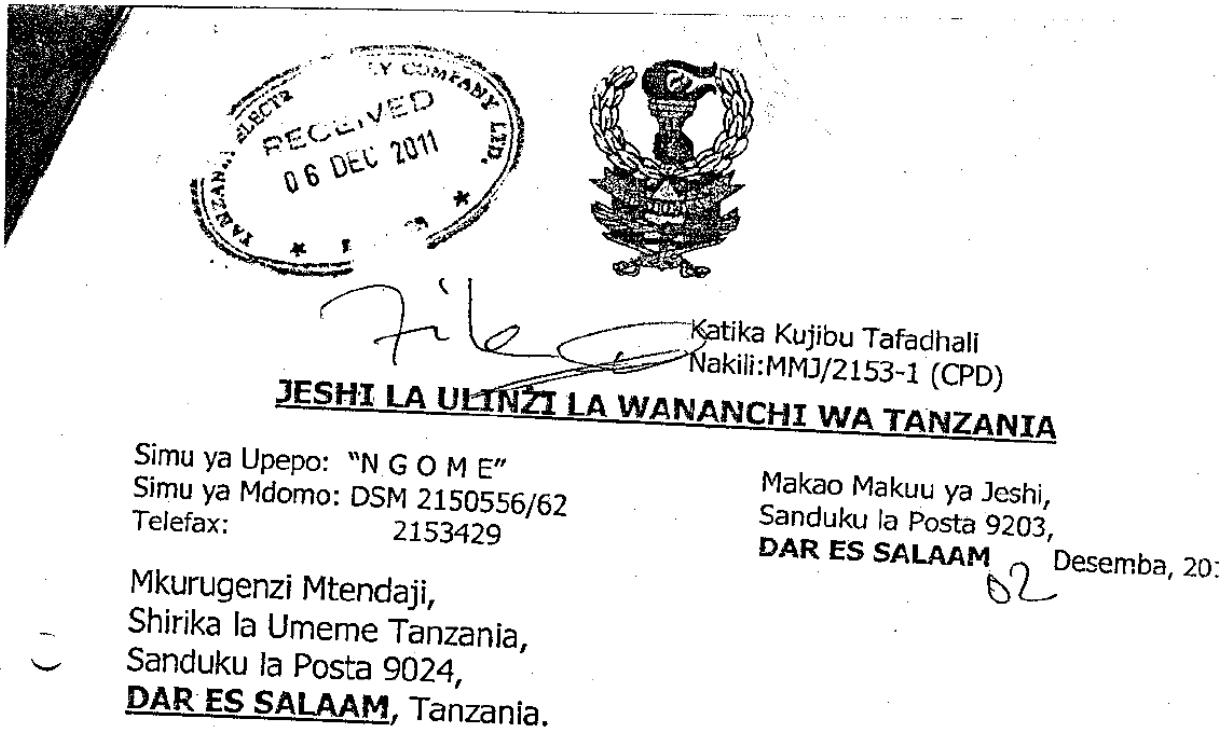 TANZANIA ELECTR LY COMPANY LTD.
RECEIVED
06 DEC 2011
File
Katika Kujibu Tafadhali
Nakili:MMJ/2153-1 (CPD)
JESHI LA ULINZI LA WANANCHI WA TANZANIA
Simu ya Upepo: "N G O M E"
Simu ya Mdomo: DSM 2150556/62
Telefax: 2153429
Makao Makuu ya Jeshi,
Sanduku la Posta 9203,
DAR ES SALAAM
02 Desemba, 20
Mkurugenzi Mtendaji,
Shirika la Umeme Tanzania,
Sanduku la Posta 9024,
DAR ES SALAAM, Tanzania.